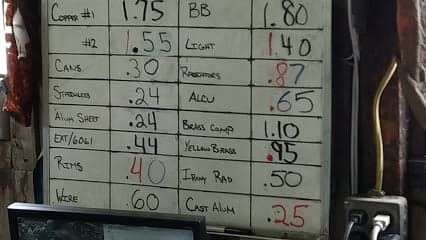 COPPER #1 1.75 BB 1.80
#2 1.55 LIGHT 1.40
CANS .30 RADIATORS .87
STAINLESS .24 ALCU .65
ALUM SHEET .24 BRASS COMP 1.10
EXT/6061 .44 YELLOW BRASS .95
RIMS .40 IRONY RAD .50
WIRE .60 CAST ALUM .25